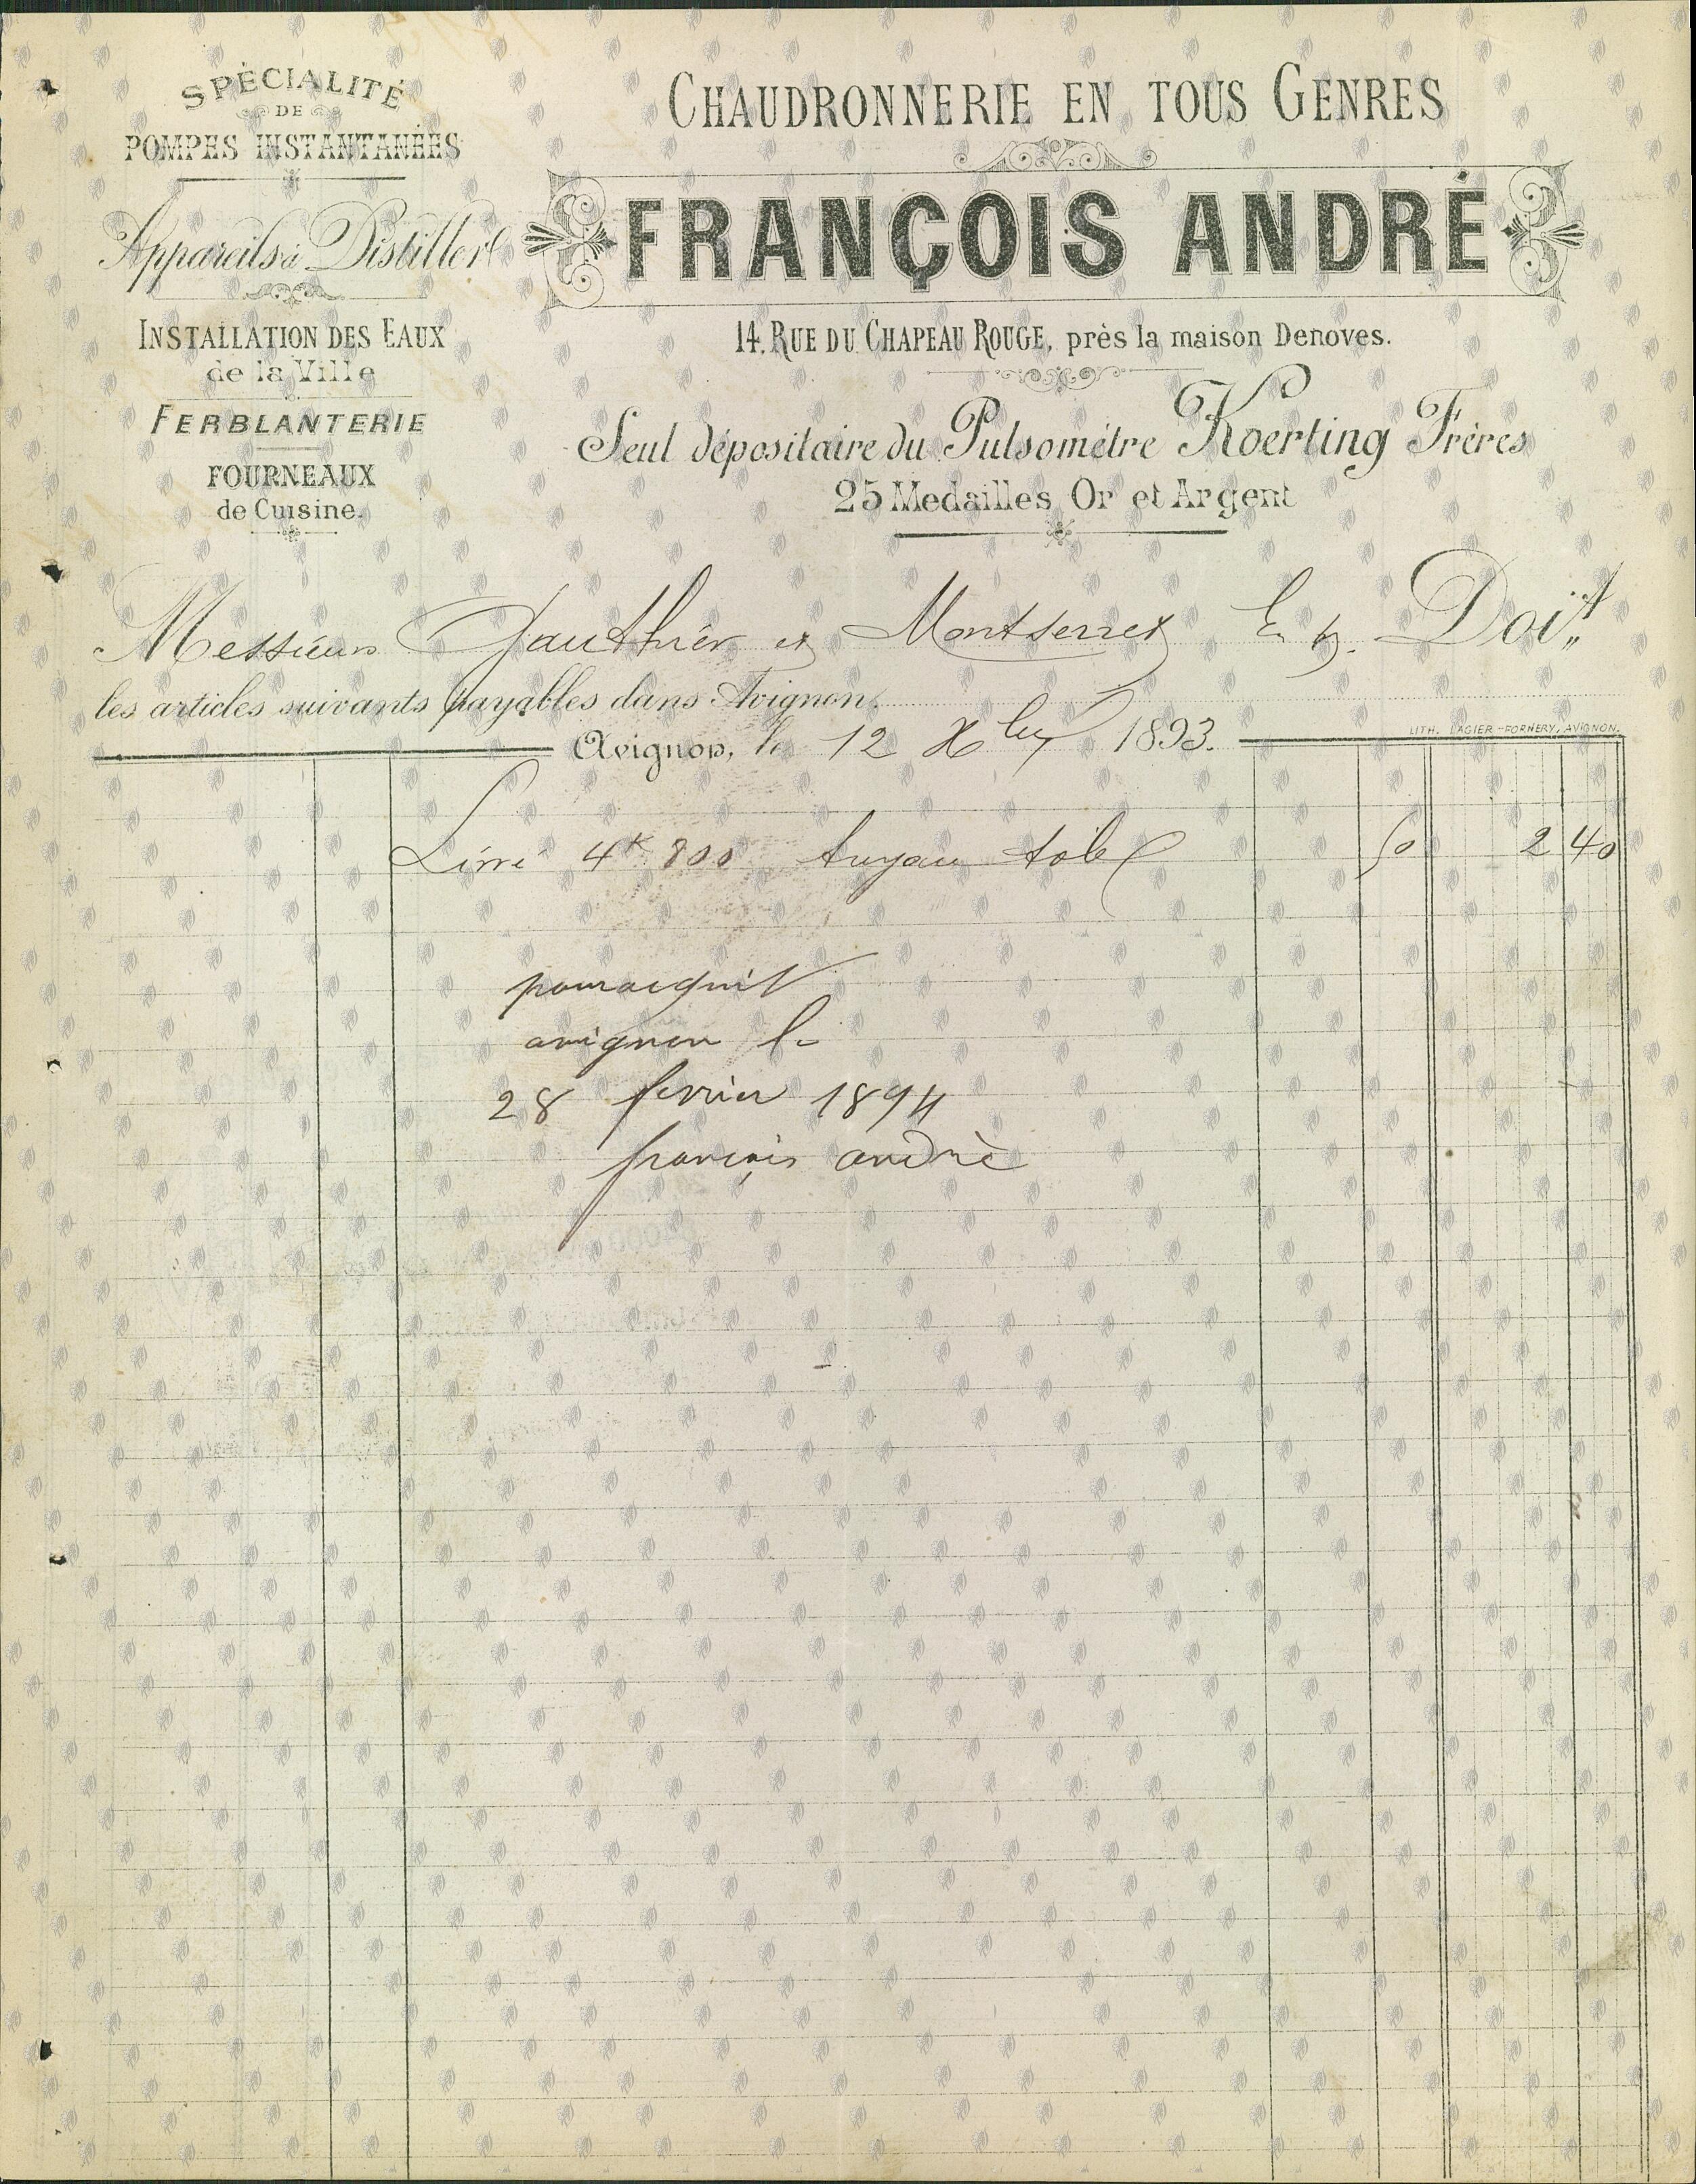 SPÉCIALITÉ
DE
POMPES INSTANTANÉES
Appareils à Distiller
INSTALLATION DES EAUX
de la Ville
FERBLANTERIE
FOURNEAUX
de Cuisine.
CHAUDRONNERIE EN TOUS GENRES
FRANÇOIS ANDRÉ
14, RUE DU CHAPEAU ROUGE, près la maison Denoves.
Seul dépositaire du Pulsomètre Koerting Frères
25 Medailles Or et Argent
Messieurs Gauthier et Montserret Doit
les articles suivants payables dans Avignon.
LITH. LAGIER-FORNERY, AVIGNON.
Avignon, le 12 Xbre 1893.
Livré 4k 800 tuyau tole 50 2 40
pouracquit
avignon le
28 fevrier 1894
françois andrè